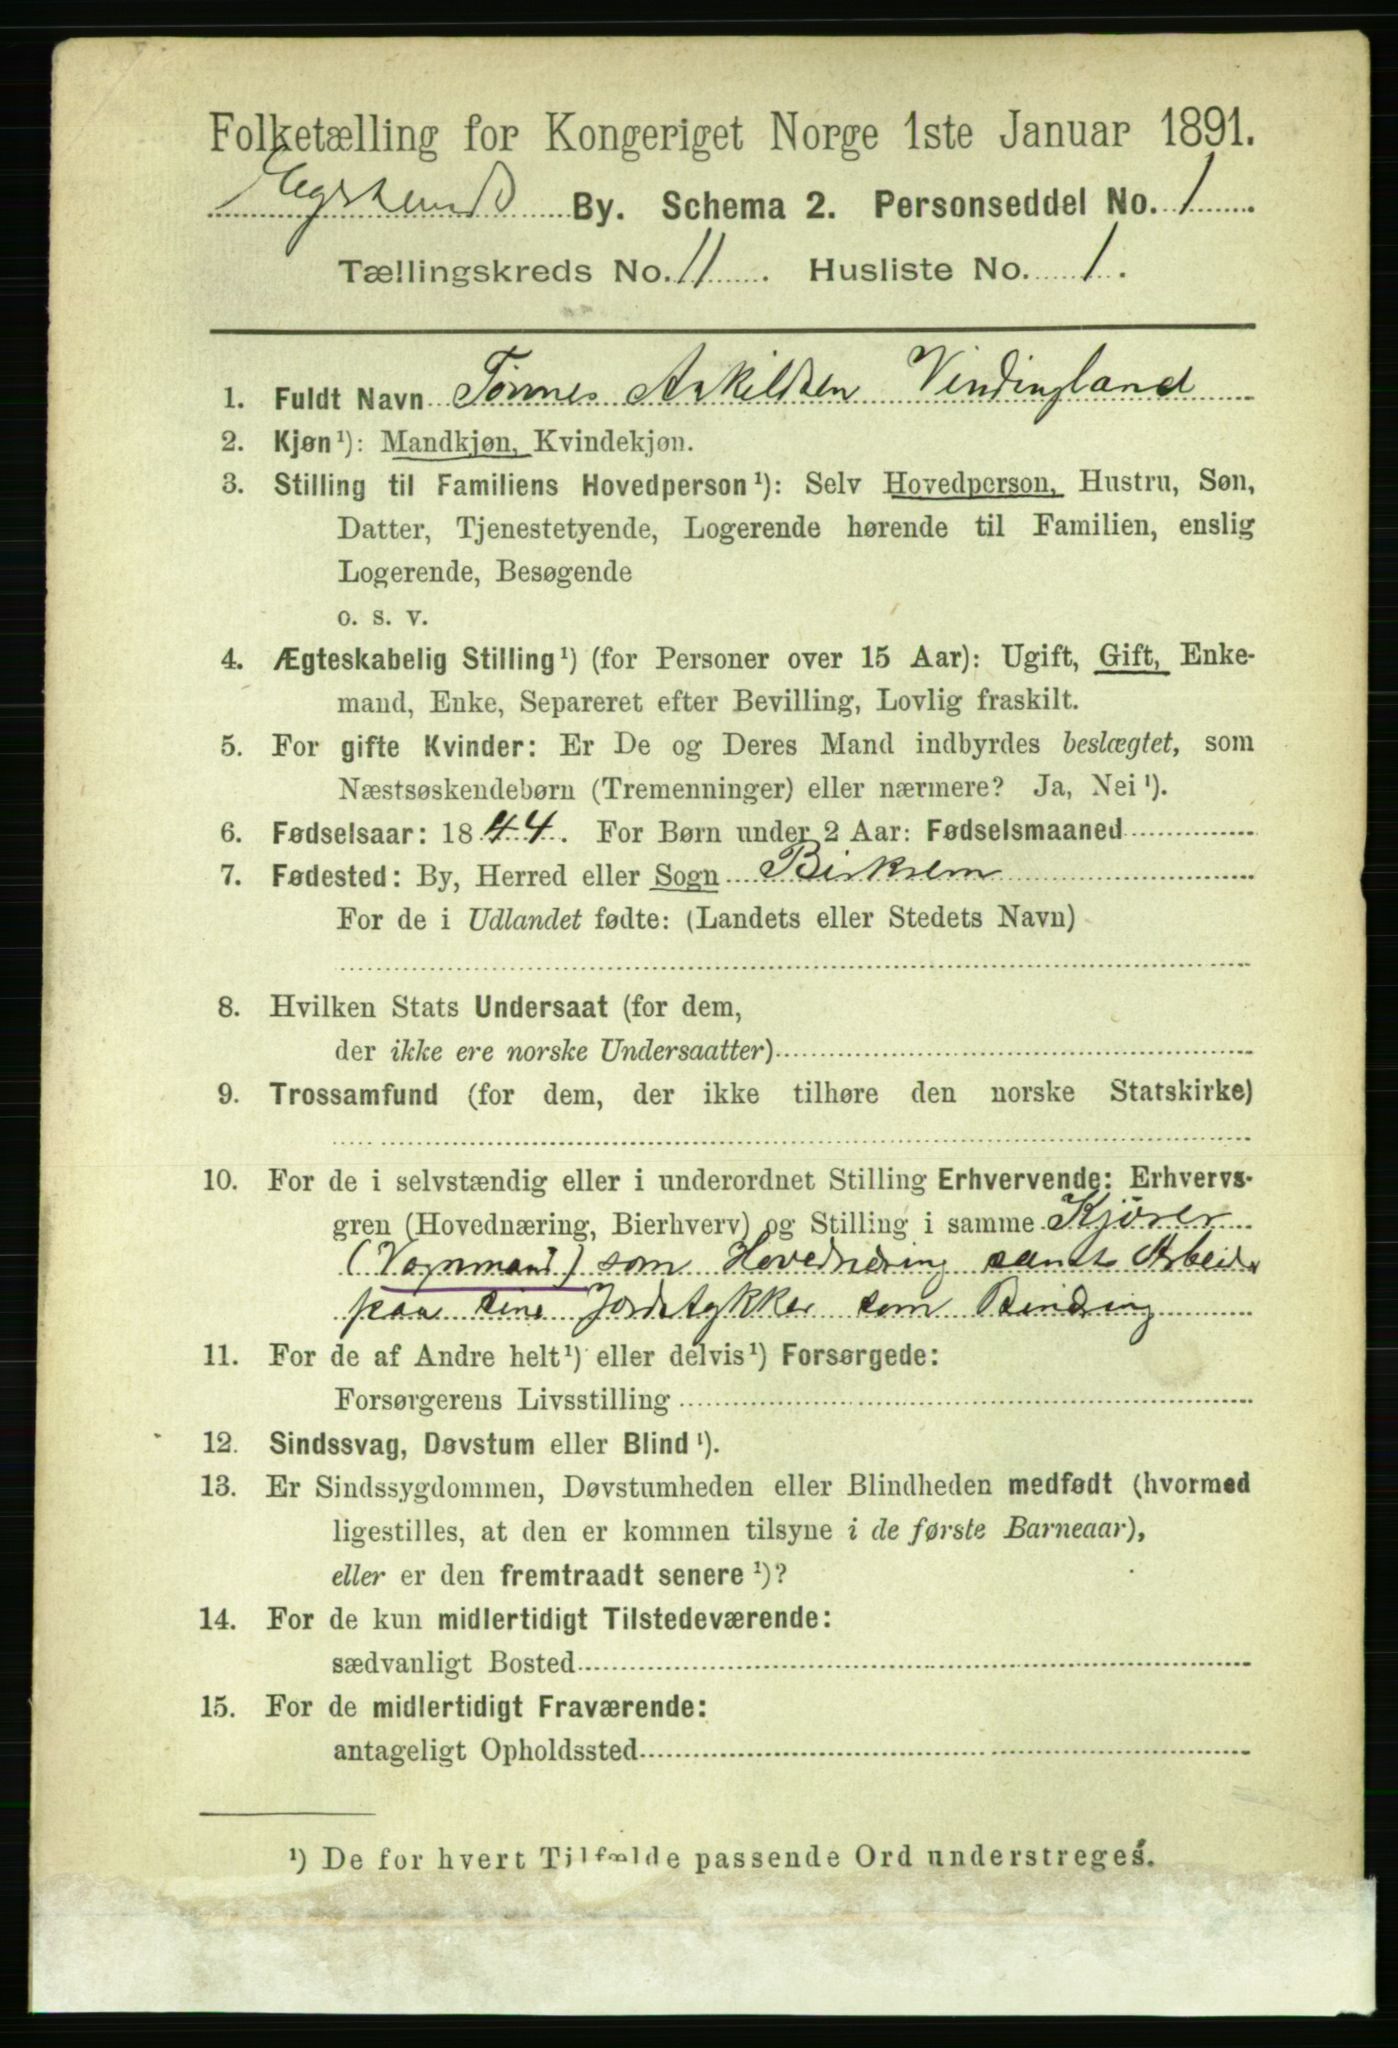 Folketælling for Kongeriget Norge 1ste Januar 1891.
Egersund By. Schema 2. Personseddel No. 1
Tællingskreds No. 11. Husliste No. 1.
1. Fuldt Navn Tønnes Askildsen Vindingland
2. Kjøn¹): Mandkjøn, Kvindekjøn.
3. Stilling til Familiens Hovedperson¹): Selv Hovedperson, Hustru, Søn,
Datter, Tjenestetyende, Logerende hørende til Familien, enslig
Logerende, Besøgende
o. s. v.
4. Ægteskabelig Stilling¹) (for Personer over 15 Aar): Ugift, Gift, Enke-
mand, Enke, Separeret efter Bevilling, Lovlig fraskilt.
5. For gifte Kvinder: Er De og Deres Mand indbyrdes beslægtet, som
Næstsøskendebørn (Tremenninger) eller nærmere? Ja, Nei¹).
6. Fødselsaar: 1844. For Børn under 2 Aar: Fødselsmaaned
7. Fødested: By, Herred eller Sogn Birkrem
For de i Udlandet fødte: (Landets eller Stedets Navn)
8. Hvilken Stats Undersaat (for dem,
der ikke ere norske Undersaatter)
9. Trossamfund (for dem, der ikke tilhøre den norske Statskirke)
10. For de i selvstændig eller i underordnet Stilling Erhvervende: Erhvervs-
gren (Hovednæring, Bierhverv) og Stilling i samme Kjører
(Vognmand) som Hovednæring samt Arbeide
paa sine Jordstykker som Binæring
11. For de af Andre helt¹) eller delvis¹) Forsørgede:
Forsørgerens Livsstilling
12. Sindssvag, Døvstum eller Blind¹).
13. Er Sindssygdommen, Døvstumheden eller Blindheden medfødt (hvormed
ligestilles, at den er kommen tilsyne i de første Barneaar),
eller er den fremtraadt senere¹)?
14. For de kun midlertidigt Tilstedeværende:
sædvanligt Bosted
15. For de midlertidigt Fraværende:
antageligt Opholdssted
¹) De for hvert Tilfælde passende Ord understreges.